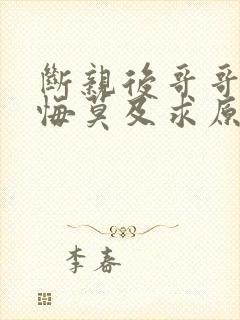 斷親後哥哥
悔莫及求原
李春